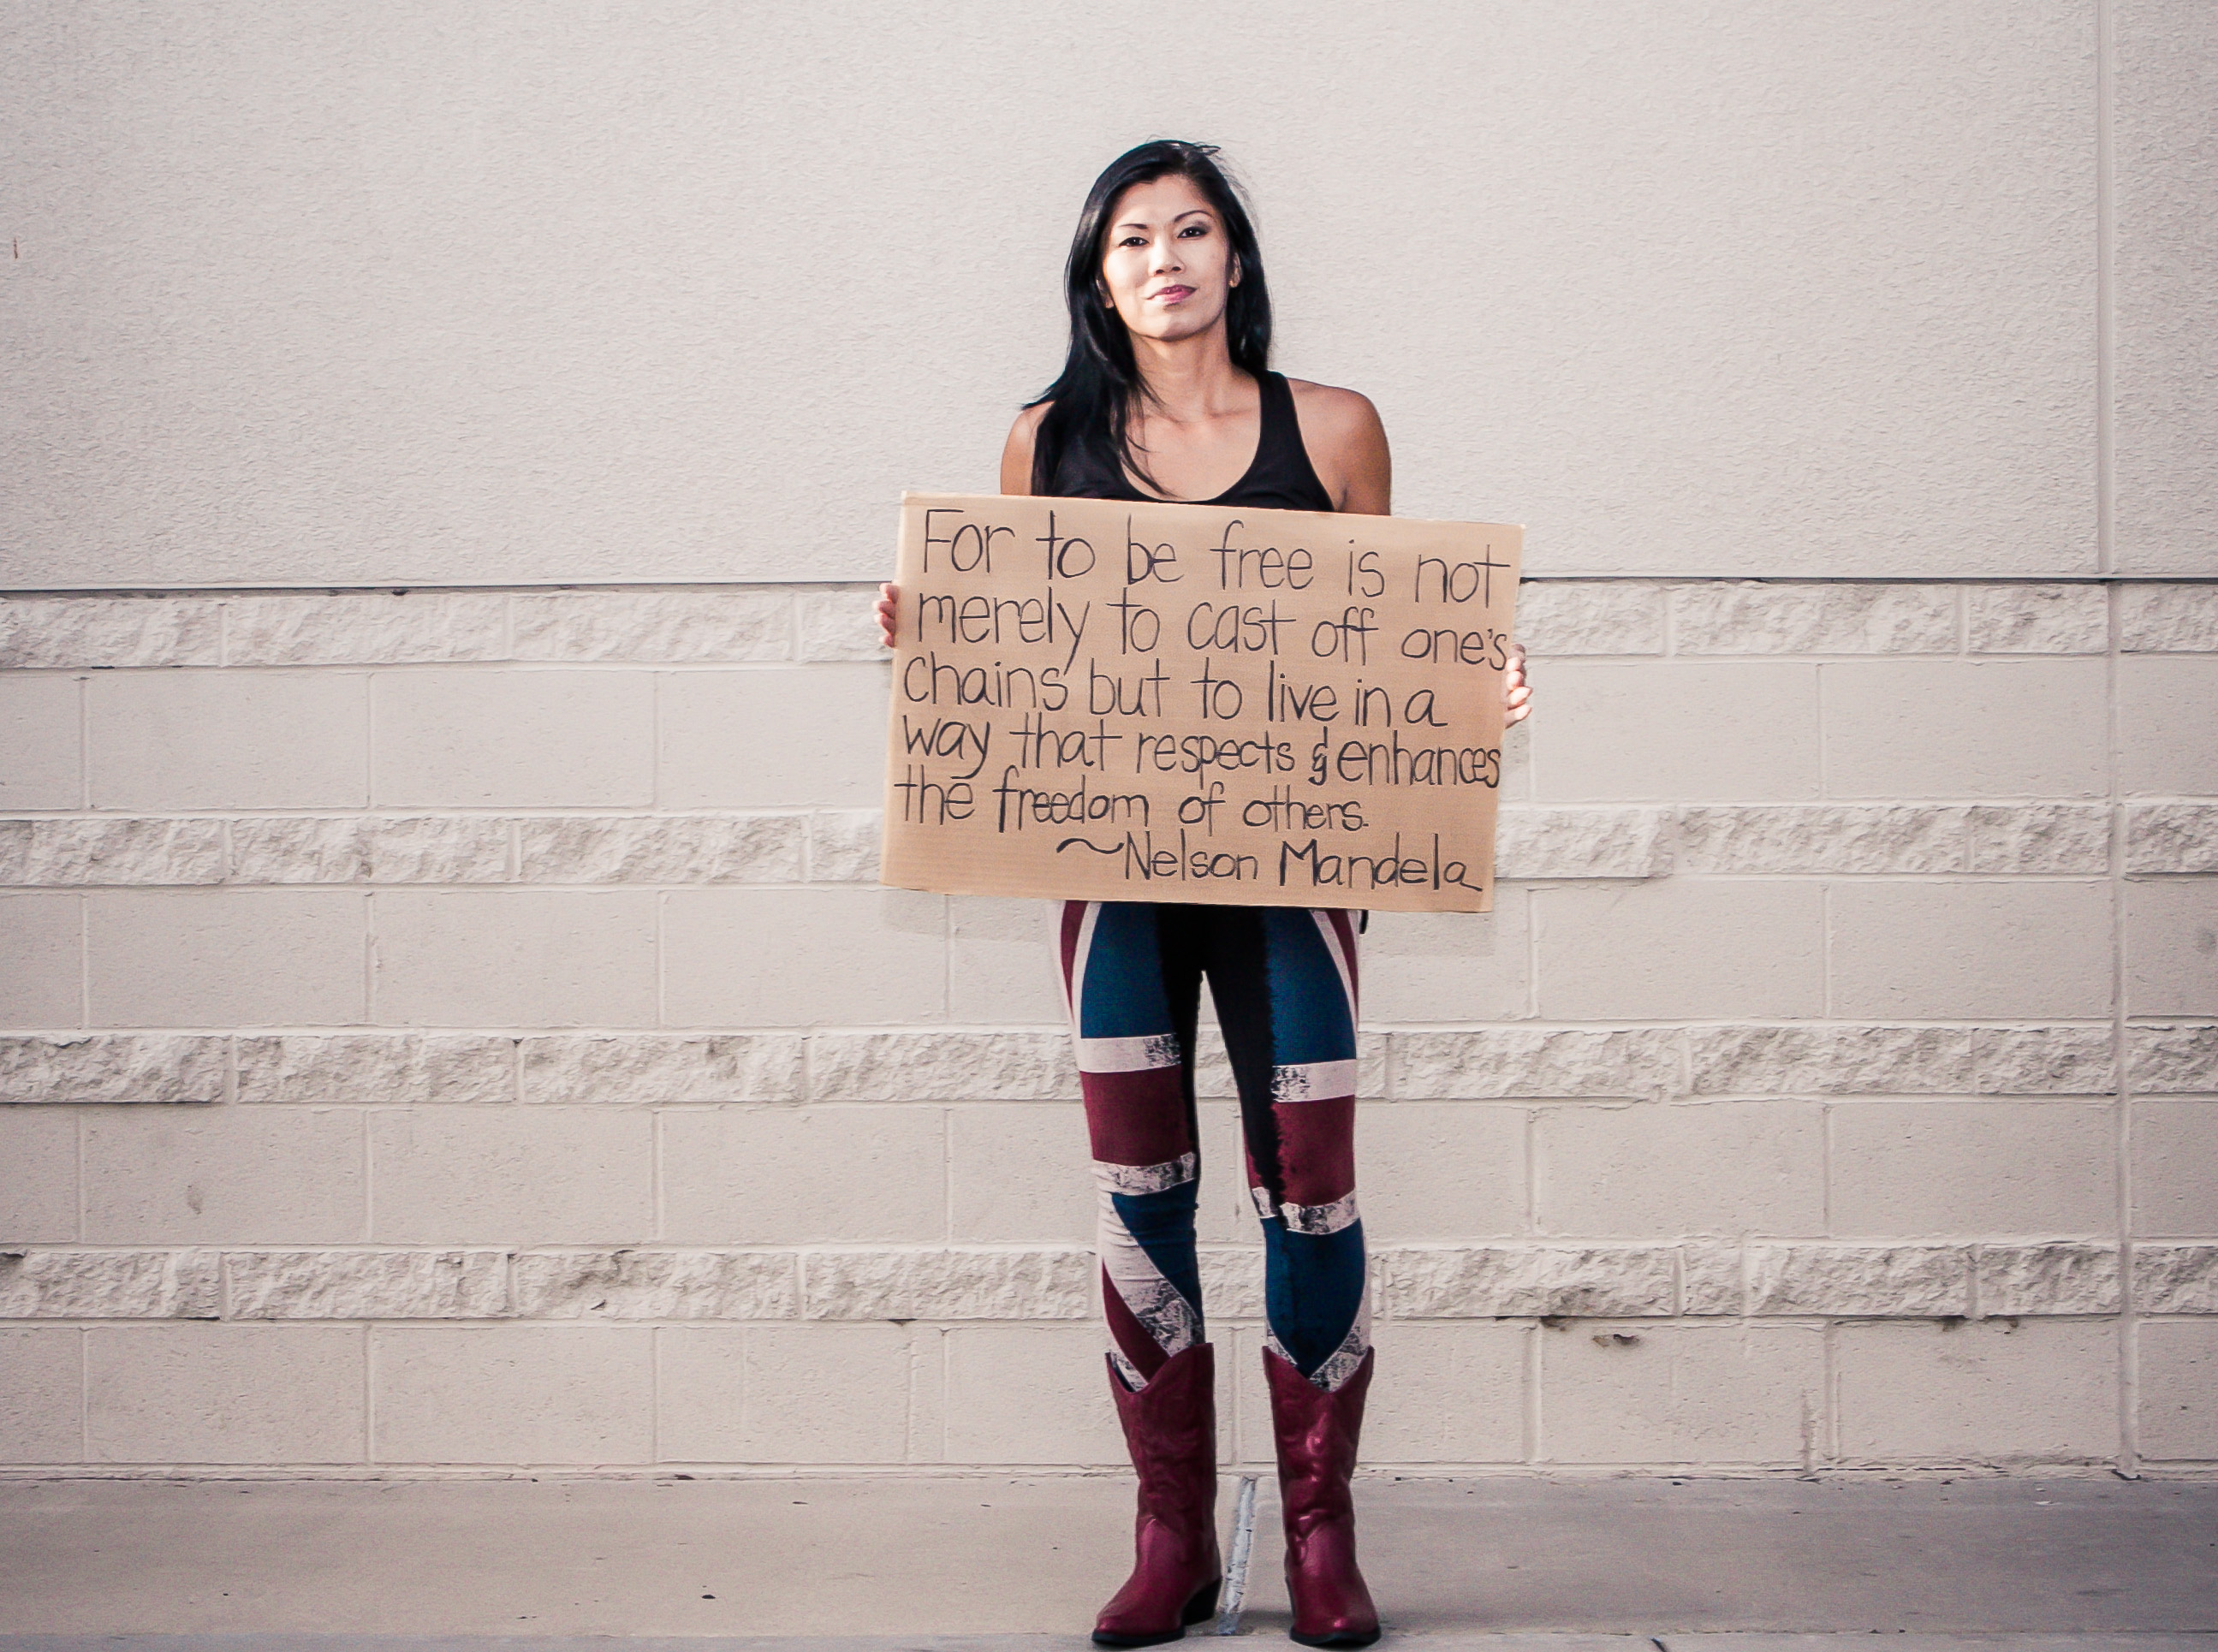 For to be free is not
merely to cast off one's
chains but to live in a
way that respects & enhances
the freedom of others.
~Nelson Mandela